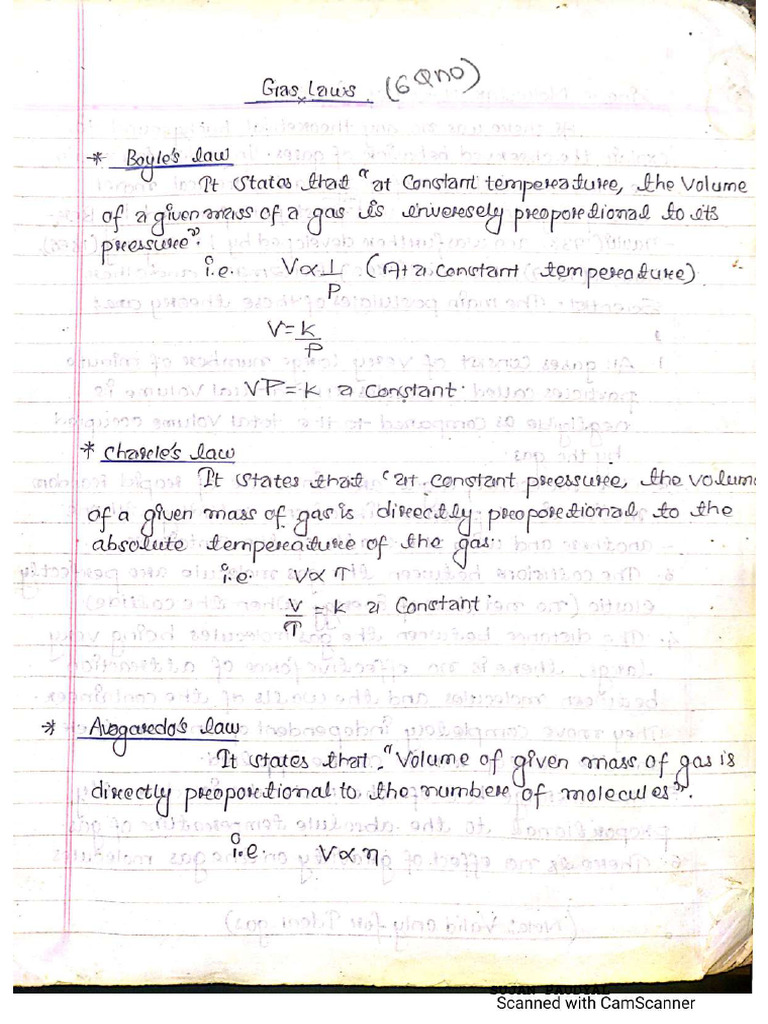 Gas Laws (6 Qno)
* Boyle's law
It states that "at constant temperature, the volume
of a given mass of a gas is inversely proportional to its
pressure".
i.e. V∝1/P (At a constant temperature)
V=k/P
VP=k a constant.
* Charle's law
It states that "at constant pressure, the volum
of a given mass of gas is directly proportional to the
absolute temperature of the gas.
i.e. V∝T
V/T = k a constant.
* Avogaredo's law
It states that "Volume of given mass of gas is
directly proportional to the number of molecules".
i.e. V∝n
Scanned with CamScanner